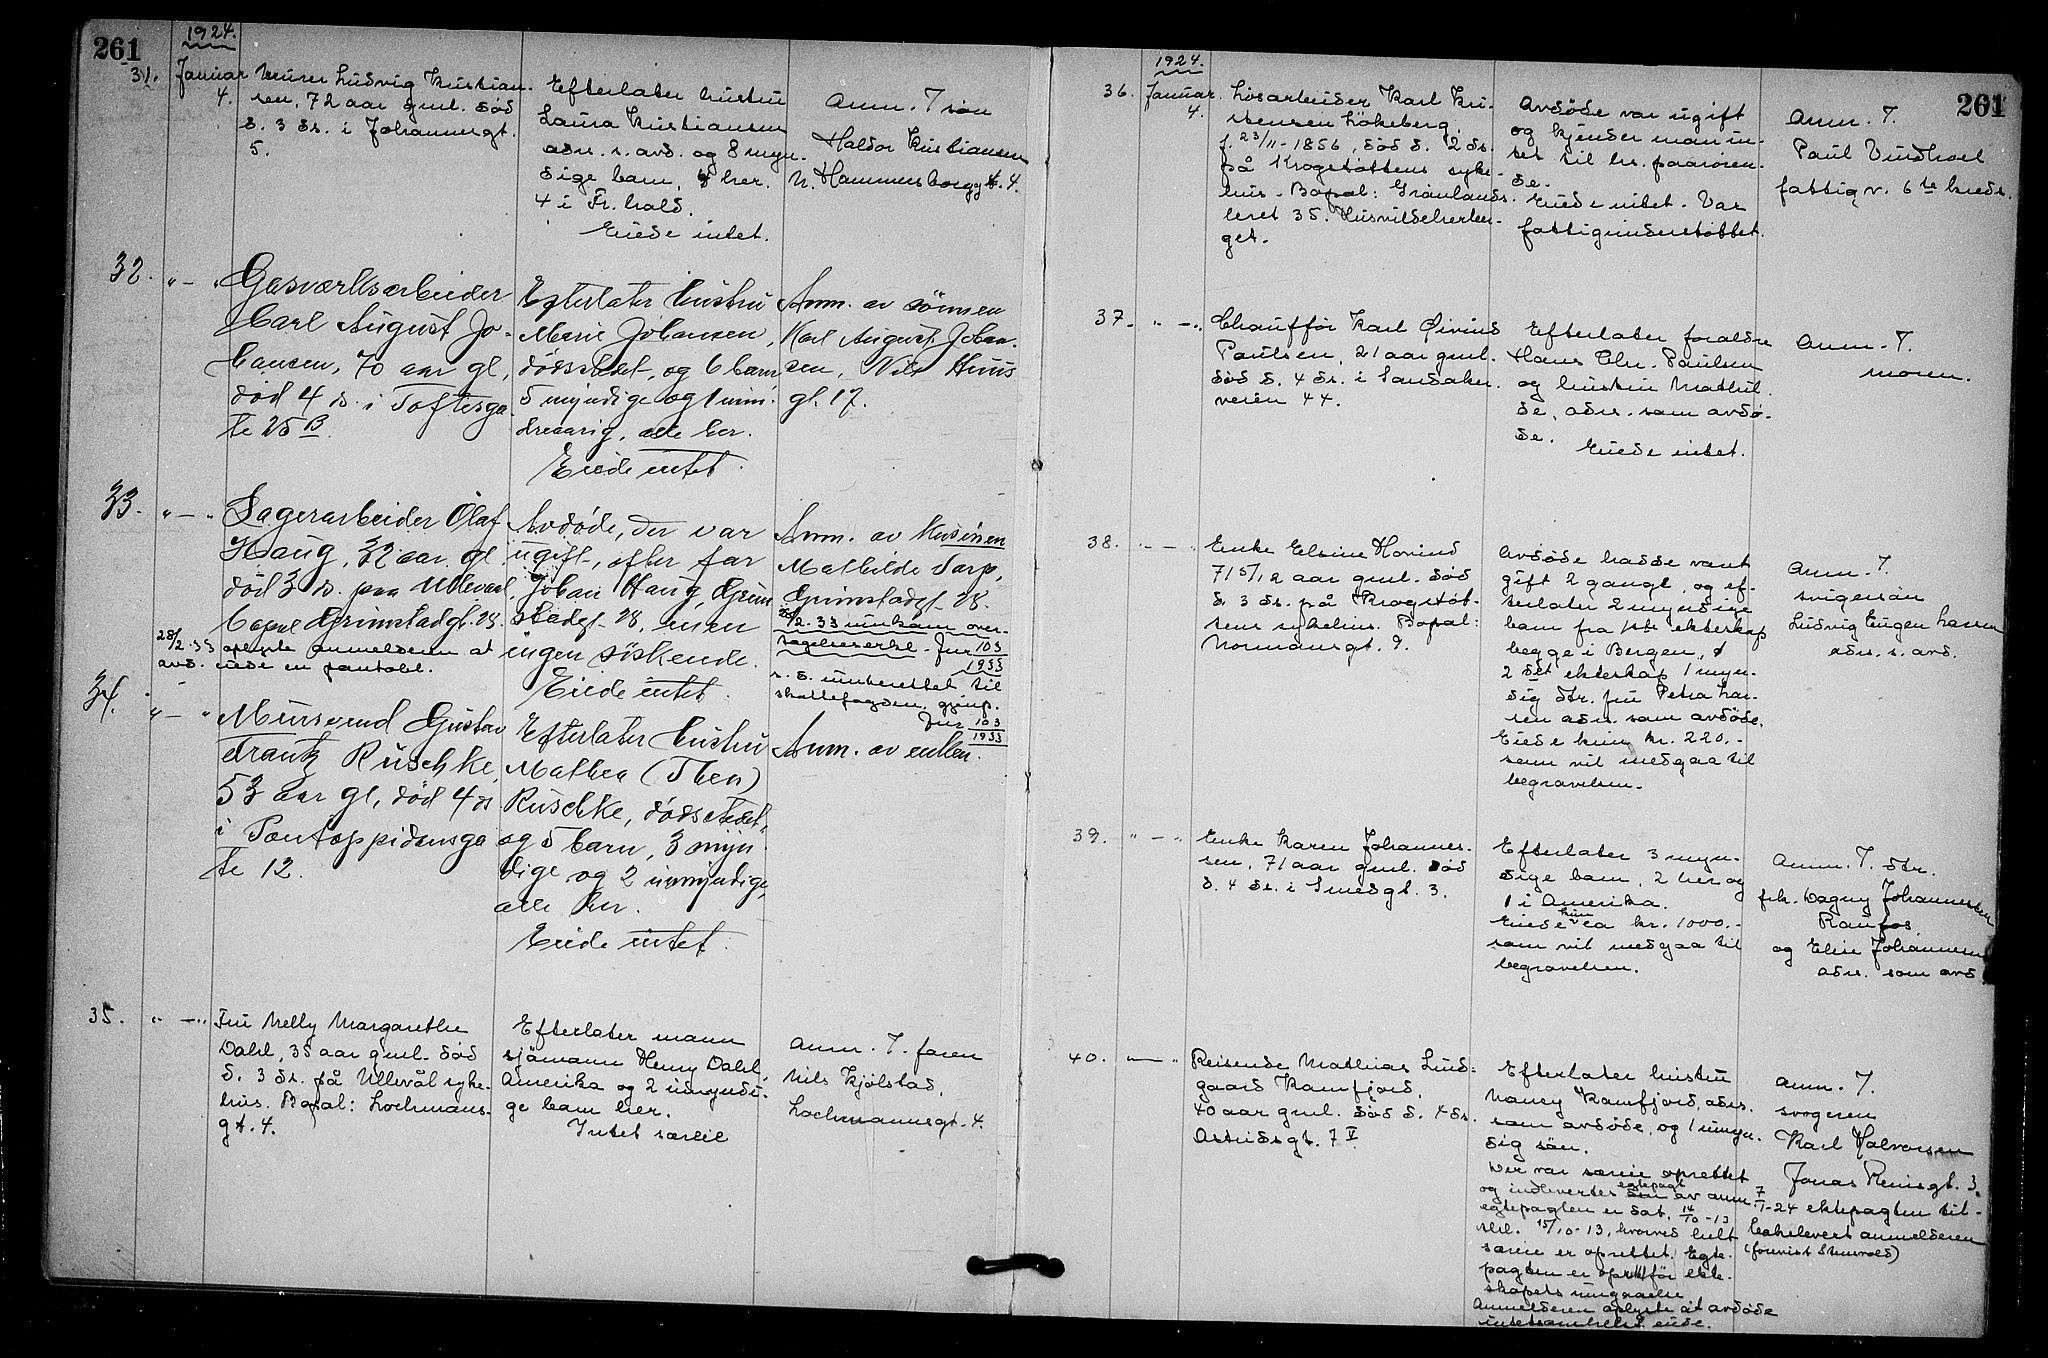 261
1924.
31.
Januar
4.
Murer Ludvig Kristian-
sen, 72 aar gml. død
d. 3 ds. i Johannesgt.
5.
Efterlater hustru
Laura Kristiansen
adr. s. avd. og 8 myn-
dige barn, her.
4 i Fr.hald.
Eiede intet.
Anm. T. søn
Haldor Kristiansen
N. Hammersborggt. 4.
32.
" — "
Gasværksarbeider
Carl August Jo-
hansen, 70 aar gl,
død 4 ds. i Toftesga-
te 25 B.
Efterlater hustru
Marie Johansen,
dødsstedet, og 6 barn
5 myndige og 1 min-
dreaarig, alle her.
Eiede intet.
Anm. av sønnen
Karl August Johan-
sen, Nils Huus
gt. 17.
33.
" — "
Lagerarbeider Olaf
Haug, 32 aar gl.
død 3 ds. paa Ullevaal,
bopæl Grimstadgt. 28.
28/2.33 oplyste anmelderen at
avd. eiede en pantobl.
Avdøde, der var
ugift, efter far
Johan Haug, Grim
stadgt. 28, men
ingen søskende.
Eiede intet.
Anm. av kusinen
Mathilde Torp,
Grimstadgt. 28.
28/2.33 innkom over-
tagelseserkl. Jnr 103/1933
s. d. underrettet til
skattefogden, gjenp.
Jnr 103/1933
34.
" — "
Murersvend Gustav
Frantz Ruschke,
53 aar gl, død 4 ds
i Pontoppidansga
te 12.
Efterlater hustru
Mathea (Thea)
Ruschke, dødsstedet,
og 5 barn, 3 myn-
dige og 2 umyndige,
alle her.
Eiede intet.
Anm. av enken.
35.
" — "
Fru Nelly Margarethe
Dahl, 35 aar gml. død
d. 3 ds. på Ullevål syke-
hus. Bopæl: Lochmanns-
gt. 4.
Efterlater mann
sjømann Henry Dahl,
Amerika og 2 umyndi-
ge barn her.
Intet særeie
Anm. T. faren
Nils Kjølstad,
Lochmannsgt. 4.
261
1924.
36.
Januar
4.
Løsarbeider Karl Kri-
stensen Løkeberg,
f. 23/11-1856, død d. 2 ds.
på Krogstøttens syke-
hus. Bopæl: Grønlands-
leret 35. Husvildeherber-
get.
Avdøde var ugift
og kjender man in-
tet til hs. paarøren-
de.
Eiede intet. Var
fattigunderstøttet.
Anm. T.
Paul Vindhoel
fattigv. 6te kreds.
37.
" — "
Chauffør Karl Eivind
Paulsen, 21 aar gml.
død d. 4 ds. i Sandaker-
veien 44.
Efterlater foreldre
Hans Chr. Paulsen
og hustru Mathil-
de, adr. som avdø-
de.
Eiede intet.
Anm. T.
moren.
38.
" — "
Enke Elsine Hovind
71 5/12 aar gml. død
d. 3 ds. på Krogstøt-
tens sykehus. Bopæl:
Normansgt. 9.
Avdøde hadde vært
gift 2 gange, og ef-
terlater 2 myndige
barn fra 1ste ekteskap
begge i Bergen,
2 det ekteskap 1 myn-
dig dtr. fru Petra Lar-
sen adr. som avdøde.
Eiede kun kr. 220.-
som vil medgaa til
begravelsen.
Anm. T.
svigersøn
Ludvig Eugen Larsen
adr. s. avd.
39.
" — "
Enke Karen Johannes-
sen, 71 aar gml. død
d. 4 ds. i Smedgt. 3.
Efterlater 3 myn-
dige barn, 2 her og
1 i Amerika.
Eiede kun ca kr. 1000.-
som vil medgaa til
begravelsen.
Anm. T. dtr.
frk. Dagny Johannessen
Raufos
og Elise Johannessen
adr. som avd
40.
" — "
Reisende Mathias Lund-
gaard Kamfjord,
40 aar gml. død d. 4 ds.
Astridsgt. 7 V
Efterlater hustru
Nancy Kamfjord, adr.
som avdøde, og 1 umyn-
dig søn.
Der var særeie oprettet
og indlevertes egtepagt av anm.
egtepagten er dat. 14/10-13
tkl. 15/10-13, hvorved helt
særeie er oprettet. Egte-
pagten er opr. før ekte-
skapets inngaaelse
Anmelderen oplyste at avdøde
intetsomhelst eiede.
Anm. T.
svogeren
Karl Halvorsen
Jonas Reinsgt. 3.
7/1-24 ektepagten til-
bakelevert anmelderen